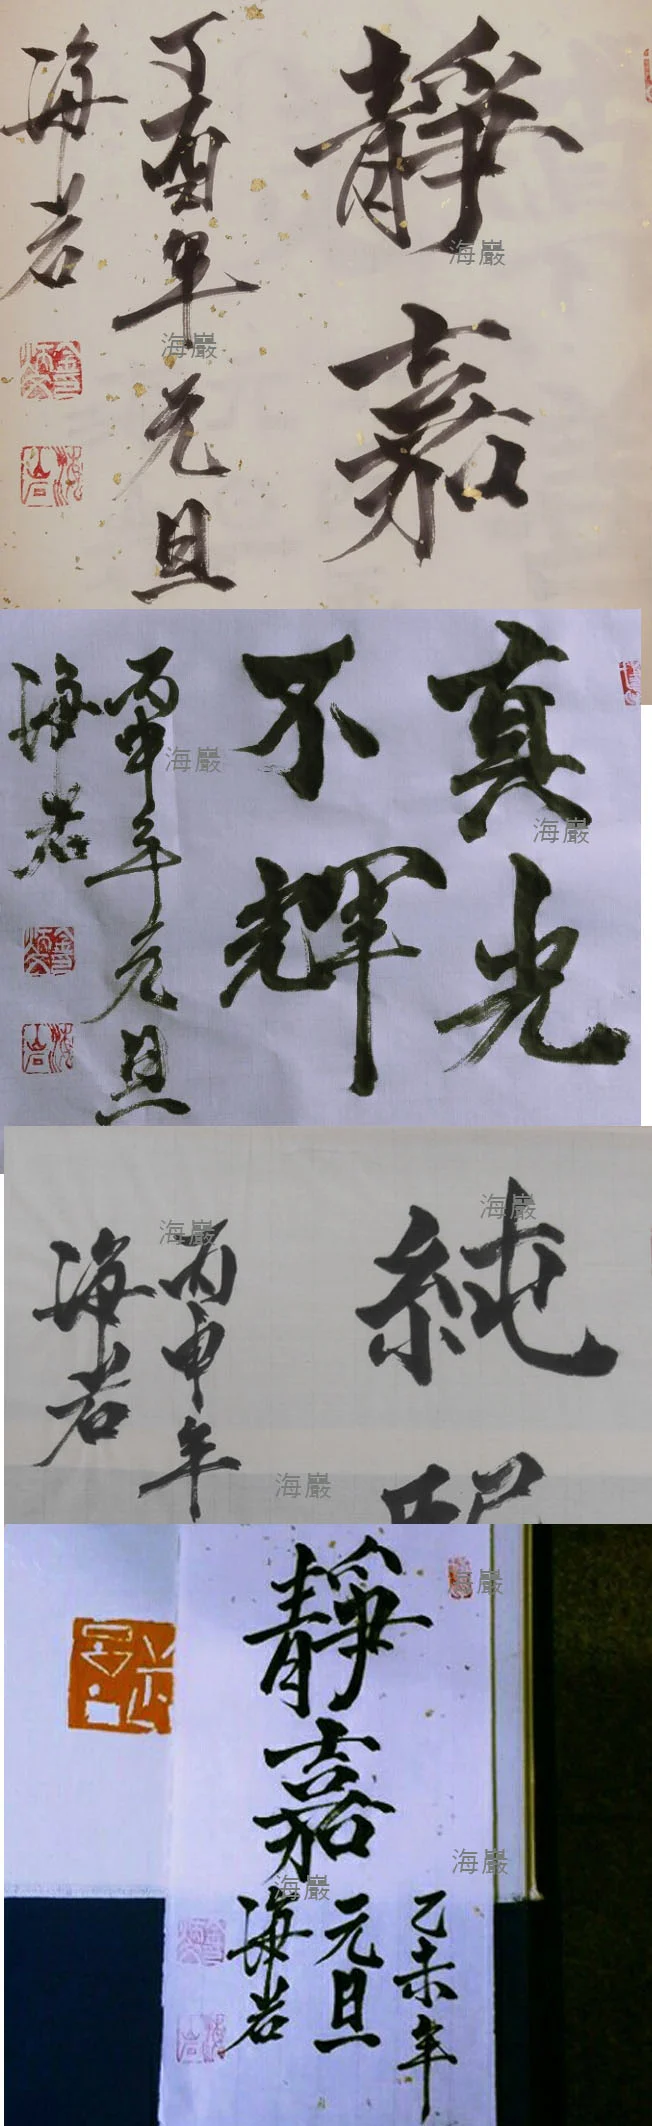 靜嘉
丁酉年元旦
海岩
海巖
海巖
真光
不輝
丙申年元旦
海岩
海巖
海巖
純
丙申年
海岩
海巖
海巖
海巖
靜嘉
乙未年
元旦
海岩
海巖
海巖
海巖